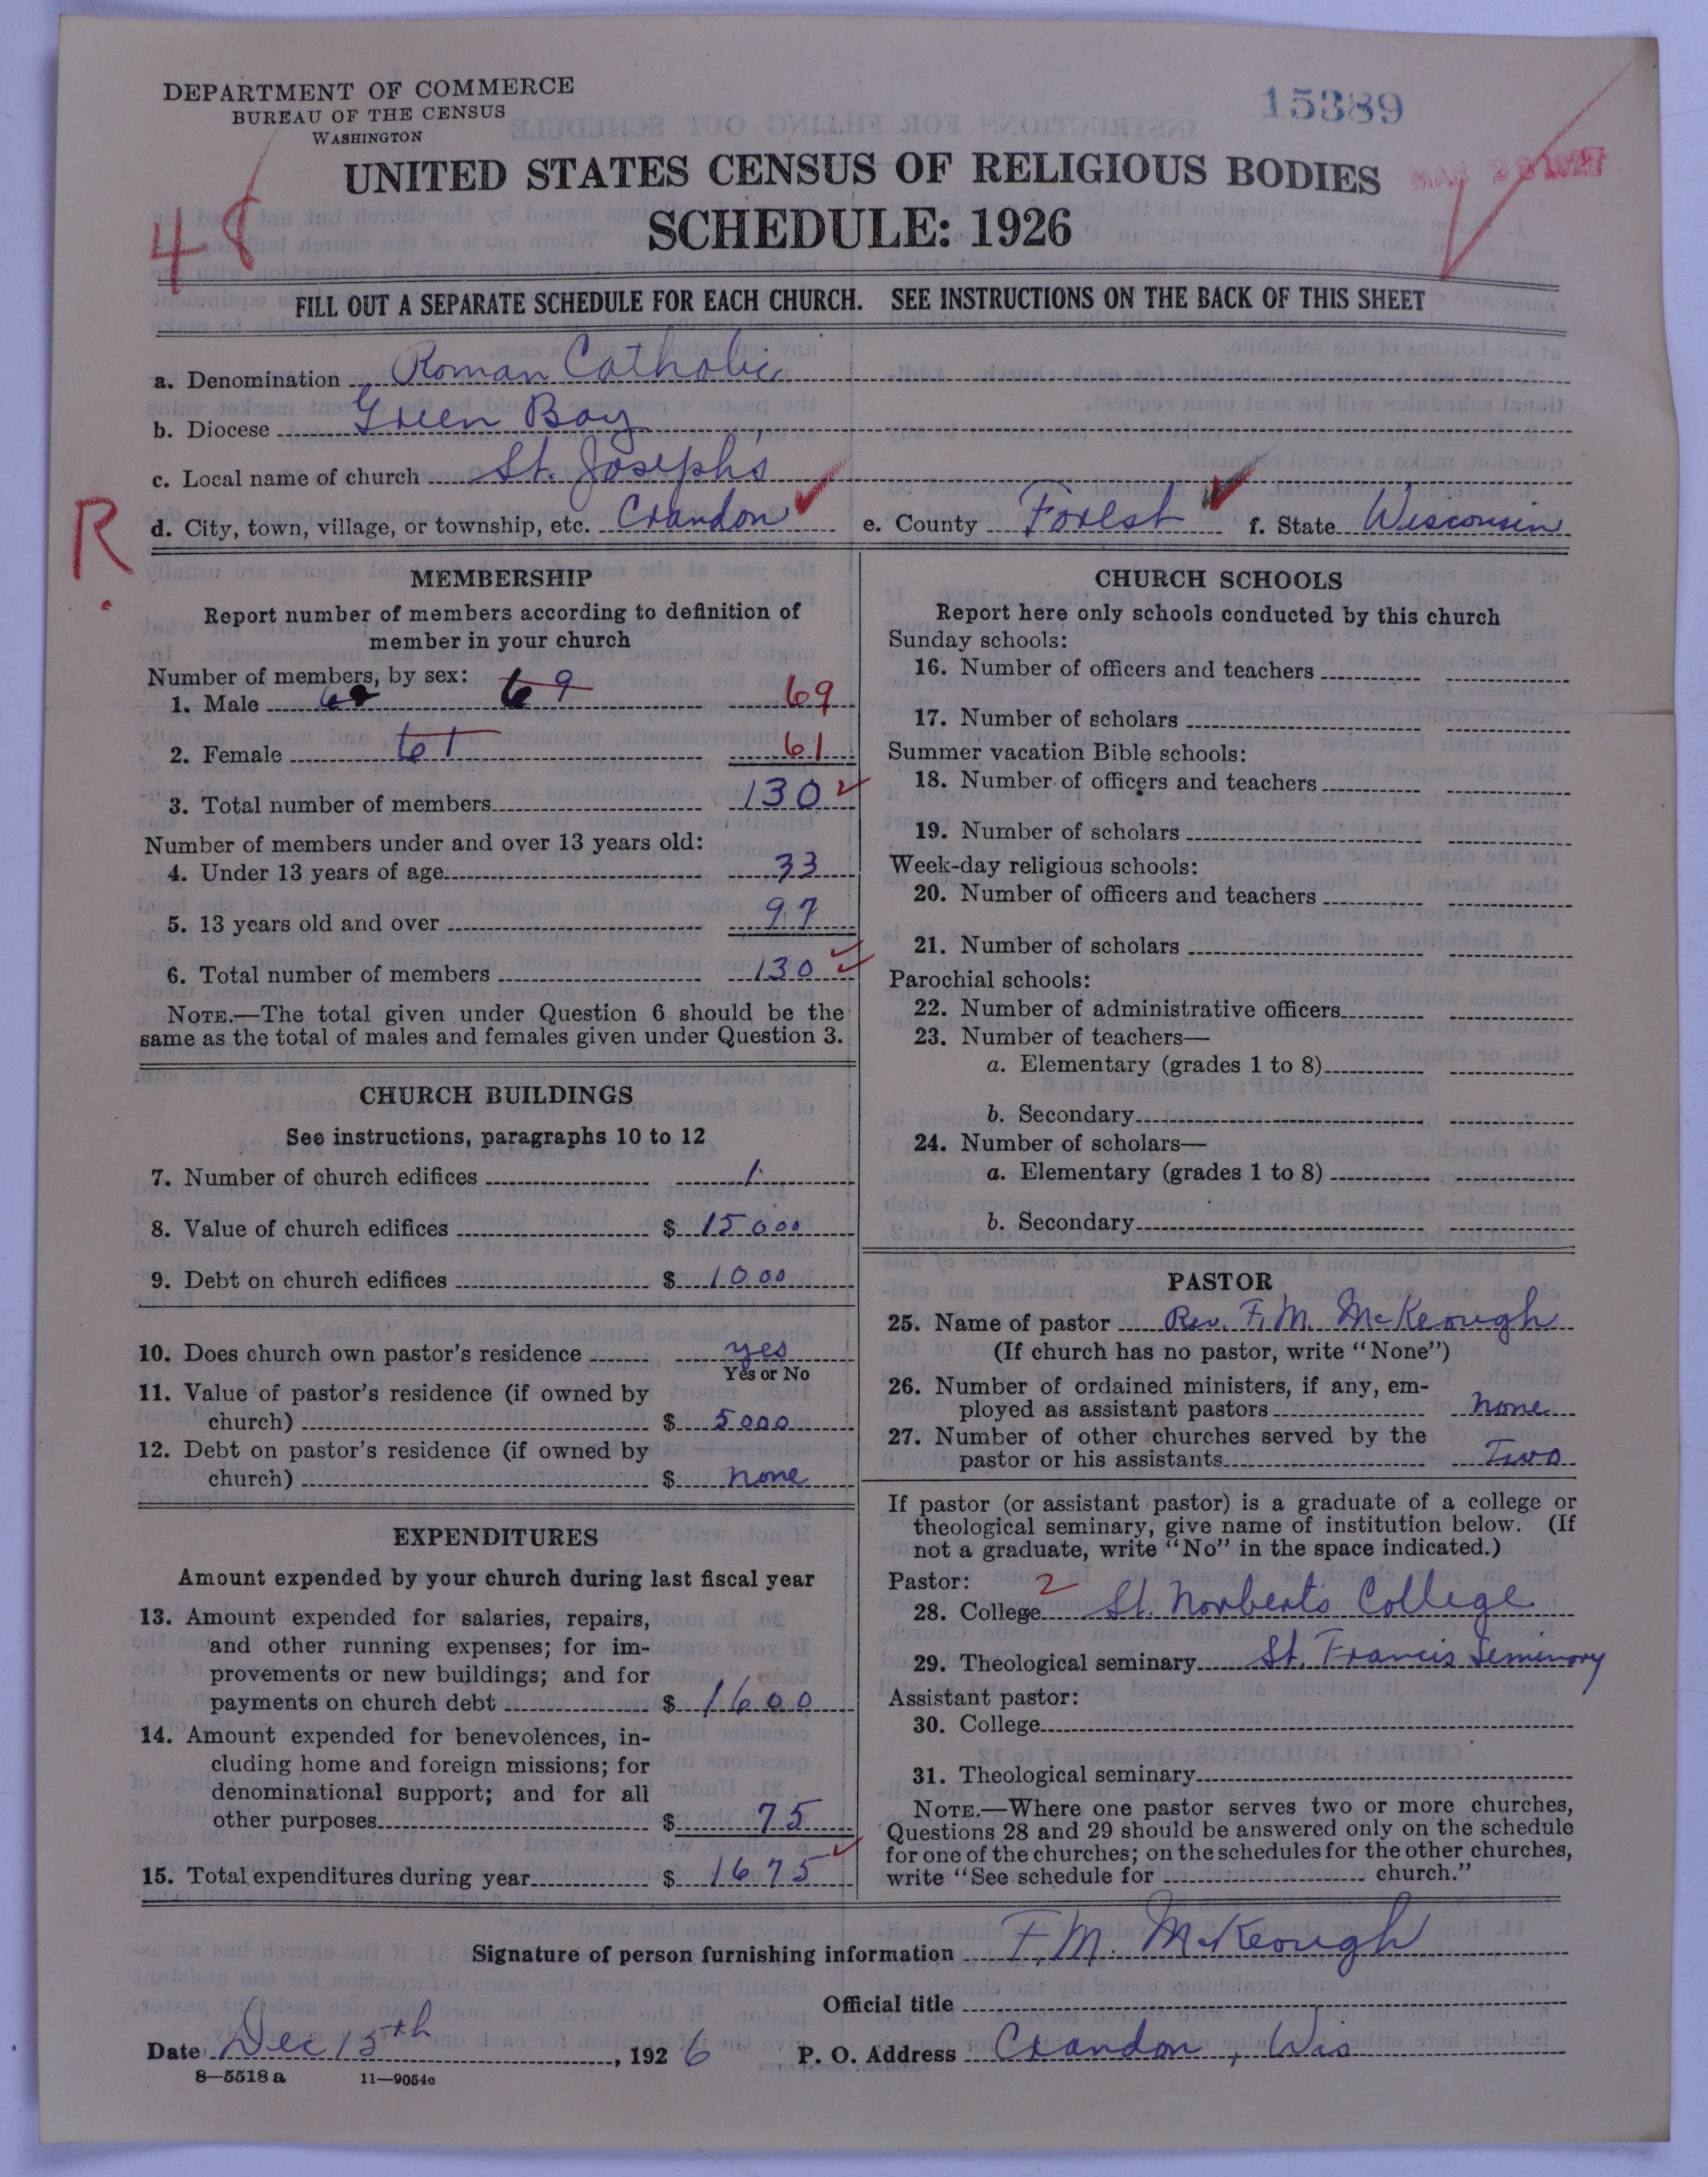 DEPARTMENT OF COMMERCE
BUREAU OF THE CENSUS
WASHINGTON
15389
UNITED STATES CENSUS OF RELIGIOUS BODIES
MAR 28 1927
SCHEDULE: 1926
48
FILL OUT A SEPARATE SCHEDULE FOR EACH CHURCH. SEE INSTRUCTIONS ON THE BACK OF THIS SHEET
a. Denomination Roman Catholic
b. Diocese Green Bay
c. Local name of church St. Joseph's
R.
d. City, town, village, or township, etc. Crandon e. County Forest f. State Wisconsin
MEMBERSHIP
Report number of members according to definition of
member in your church
Number of members, by sex:
1. Male 69 69
2. Female 61 61
3. Total number of members 130
Number of members under and over 13 years old:
4. Under 13 years of age 33
5. 13 years old and over 97
6. Total number of members 130
NOTE.—The total given under Question 6 should be the
same as the total of males and females given under Question 3.
CHURCH BUILDINGS
See instructions, paragraphs 10 to 12
7. Number of church edifices 1
8. Value of church edifices $ 15000
9. Debt on church edifices $ 1000
10. Does church own pastor's residence yes
Yes or No
11. Value of pastor's residence (if owned by
church) $ 5000
12. Debt on pastor's residence (if owned by
church) $ none
EXPENDITURES
Amount expended by your church during last fiscal year
13. Amount expended for salaries, repairs,
and other running expenses; for im-
provements or new buildings; and for
payments on church debt $ 1600
14. Amount expended for benevolences, in-
cluding home and foreign missions; for
denominational support; and for all
other purposes $ 75
15. Total expenditures during year $ 1675
CHURCH SCHOOLS
Report here only schools conducted by this church
Sunday schools:
16. Number of officers and teachers
17. Number of scholars
Summer vacation Bible schools:
18. Number of officers and teachers
19. Number of scholars
Week-day religious schools:
20. Number of officers and teachers
21. Number of scholars
Parochial schools:
22. Number of administrative officers
23. Number of teachers—
a. Elementary (grades 1 to 8)
b. Secondary
24. Number of scholars—
a. Elementary (grades 1 to 8)
b. Secondary
PASTOR
25. Name of pastor Rev. F. M. McKeough
(If church has no pastor, write "None")
26. Number of ordained ministers, if any, em-
ployed as assistant pastors none
27. Number of other churches served by the
pastor or his assistants Two
If pastor (or assistant pastor) is a graduate of a college or
theological seminary, give name of institution below. (If
not a graduate, write "No" in the space indicated.)
Pastor: 2
28. College St. Norberts College
29. Theological seminary St. Francis Seminory
Assistant pastor:
30. College
31. Theological seminary
NOTE.—Where one pastor serves two or more churches,
Questions 28 and 29 should be answered only on the schedule
for one of the churches; on the schedules for the other churches,
write "See schedule for church."
Signature of person furnishing information F. M. McKeough
Official title
Date Dec 15th, 1926 P. O. Address Crandon, Wis
8—5518 a 11—9054c